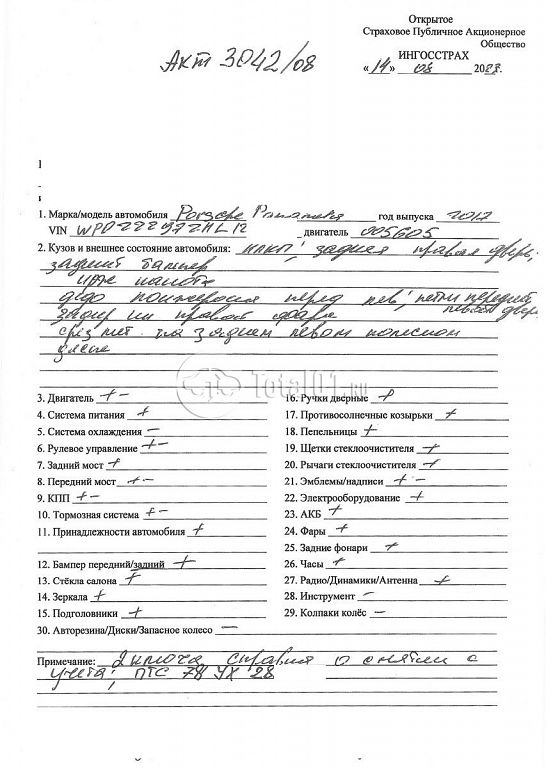 Открытое
Страховое Публичное Акционерное
Общество
ИНГОССТРАХ
Акт 3042/08
«14» 08 20
1. Марка/модель автомобиля Porsche Panamera год выпуска 2017
VIN двигатель 005605
2. Кузов и внешнее состояние автомобиля: задняя правая дверь
задний бампер
перед лев
правой
на заднем левом
Total01.ru
3. Двигатель + -
4. Система питания +
5. Система охлаждения -
6. Рулевое управление + -
7. Задний мост +
8. Передний мост + -
9. КПП + -
10. Тормозная система + -
11. Принадлежности автомобиля +
12. Бампер передний/задний +
13. Стёкла салона +
14. Зеркала +
15. Подголовники +
16. Ручки дверные
17. Противосолнечные козырьки +
18. Пепельницы +
19. Щетки стеклоочистителя +
20. Рычаги стеклоочистителя +
21. Эмблемы/надписи + -
22. Электрооборудование +
23. АКБ +
24. Фары +
25. Задние фонари +
26. Часы +
27. Радио/Динамики/Антенна +
28. Инструмент -
29. Колпаки колёс -
30. Авторезина/Диски/Запасное колесо -
Примечание: 2 ключа, справка о снятии с
учета; ПТС 78 УХ 28